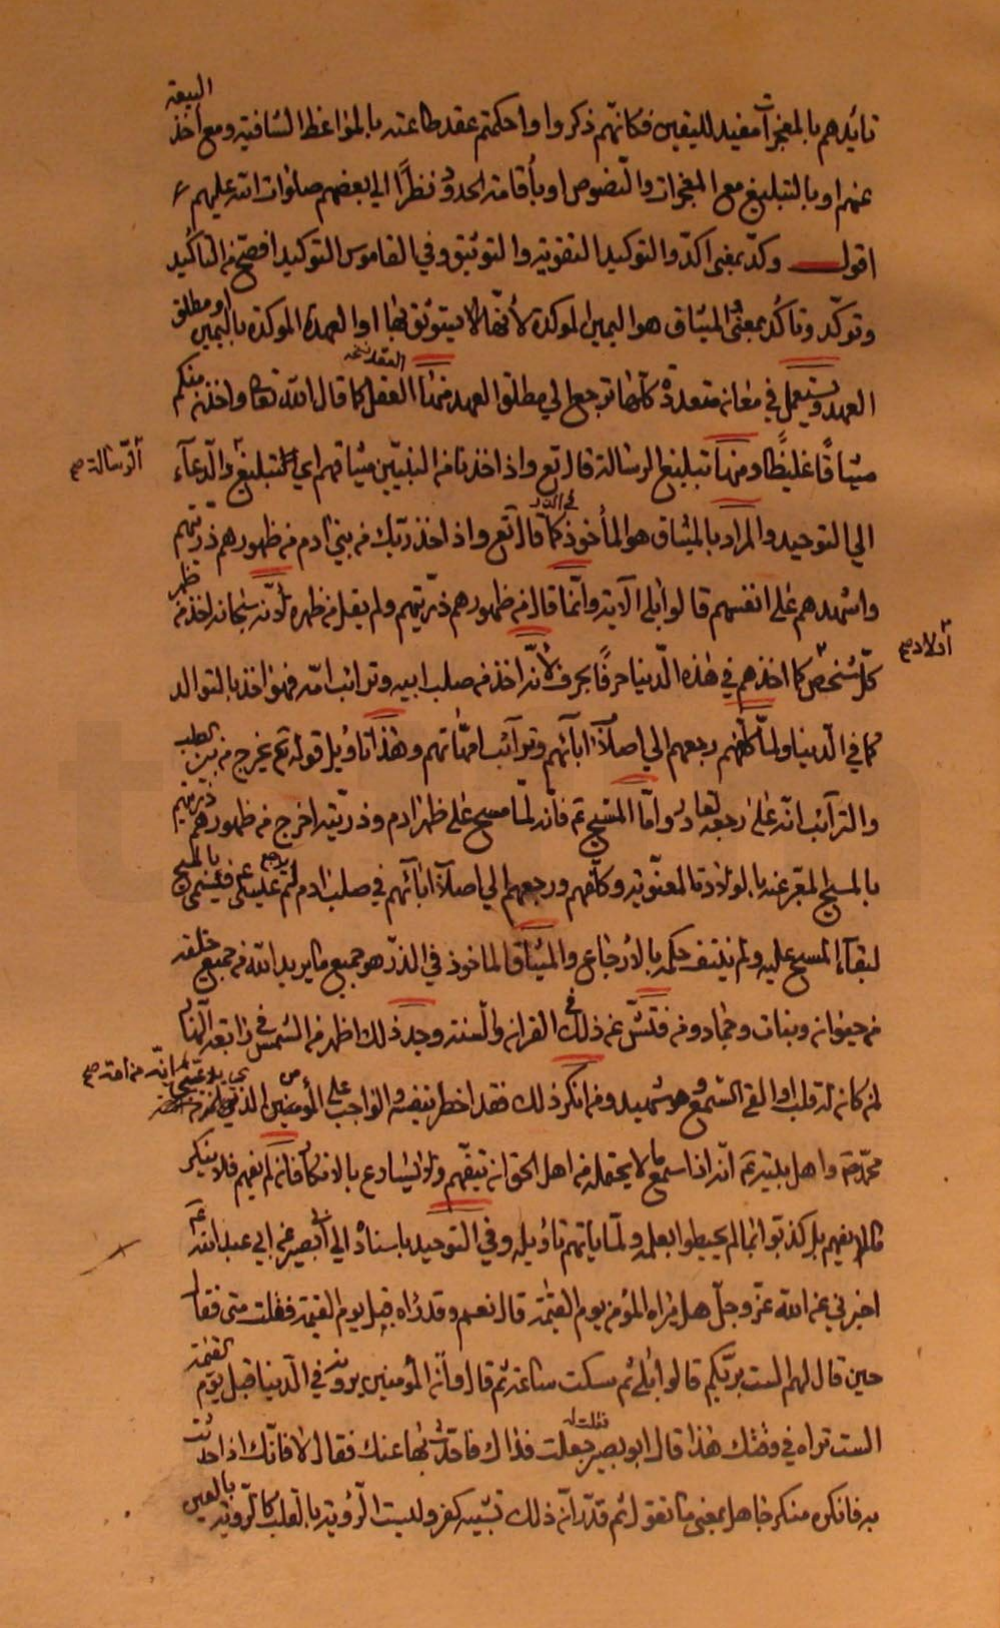 تائيدهم بالمعجزات مفيد لليقين فكانهم ذكروا واحكمتم عقد طاعته بالمواعظ الشافية ومع اخذ البيعة
عنهم او بالتبليغ مع المعجزات والنصوص او باقامة الحدود نظرًا الي بعضهم صلوات الله عليهم
اقول وكّد بمعنى اكدّ والتوكيد التقوية والتوثيق وفي القاموس التوكيد افصح من التاكيد
وتوكّد وتاكّد بمعنى والميثاق هو اليمين الموكدة لأنها لا يستوثق بها او العهدة الموكدة باليمين او مطلق
العهد ويستعمل في معان متعددة كلها ترجع الي مطلق العهد فمنها العقد كما قال الله تعالى واخذن منكم
ميثاقًا غليظًا ومنها تبليغ الرسالة قال تع واذ اخذنا من النبيين ميثاقهم اي لتبليغ الرسالة صح والدّعآء
الي التوحيد والمراد بالميثاق هو المأخوذ في الذر كما قال تع واذ اخذ ربّك من بني ادم من ظهورهم ذرّيتهم
واشهدهم على انفسهم قالوا بلى الآية وانّما قال من ظهورهم ذرّيتهم ولم يقل من ظهره لأنّه سبحانه اخذ من ظهر
كلّ شخص اولاده صح كما اخذهم في هذه الدّنيا حرفًا بحرف لأنّه اخذ من صلب ابيه وترائب امّه فهو اخذ بالتوالد
كما في الدّنيا ولمّا كلّفهم رجعهم الي اصلاب ابآئهم وترآئب امّهاتهم وهذا تاويل قوله تع يخرج من بين الصلب
والترآئب انّه على رجعه لقادر وامّا المسح ثم فانّه لمّا مسح على ظهر ادم وذريته اخرج من ظهورهم ذريتهم
بالمسح المعبّر عنه بالولادة المعنوية وكلّفهم ورجعهم الي اصلاب ابآئهم في صلب ادم ثم فيسمّى بالمسح
لبقآء المسح عليه ولم ينتف حكمه بالارجاع والميثاق الماخوذ في الذّر هو جميع ما يريد الله من جميع خلقه
من حيوان ونبات وجماد ومن فتّش عن ذلك في القران والسنة وجد ذلك اظهر من الشمس في رابعة النهار
لمن كان له قلب او القى السّمع وهو شهيد ومن انكر ذلك فقد اخطر بنفسه والواجب على المؤمنين الذي يدّعي انه من امة صح
محمّد ص واهل بيته ع انّه اذا سمع ما لا يحتمله من اهل الحق ان يتفّهم ولا يسارع بالانكار فان لم يفهم فلا ينكر
ما لم يفهم بل كذّبوا بما لم يحيطوا بعلمه ولمّا ياتهم تاويله وفي التوحيد باسناده الي ابي بصير عن ابي عبد الله ع
اخبرني عن الله عزّ وجلّ هل يراه المؤمن يوم القيمة قال نعم وقد رأه قبل يوم القيمة فقلت متى فقال
حين قال لهم الست بربّكم قالوا بلى ثم سكت ساعة ثم قال وانّ المؤمنين يرونه في الدّنيا قبل يوم القيمة
الست تراه في وقتك هذا قال ابو بصير فقلت له جعلت فداك فاحدّث بهذا عنك فقال لا فانّك اذا حدثت
به فانكره منكر جاهل بمعنى ما تقوله ثم قدّر انّ ذلك تشبيه كفر وليست الرّؤية بالقلب كالرّؤية بالعين